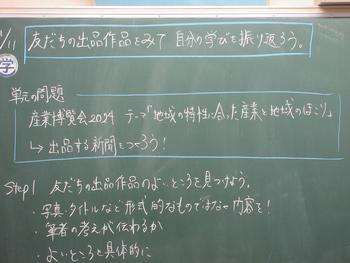 /11
友だちの出品作品をみて 自分の学びを振り返ろう。
学
単元の問題
産業博覧会2024 テーマ「地域の特性に合った産業と地域のほこり」
↳ 出品する新聞をつくろう！
Step1 友だちの出品作品のよいところを見つけよう。
・写真・タイトルなど形式的なものではなく内容を！
・筆者の考えが伝わるか
・よいところを具体的に